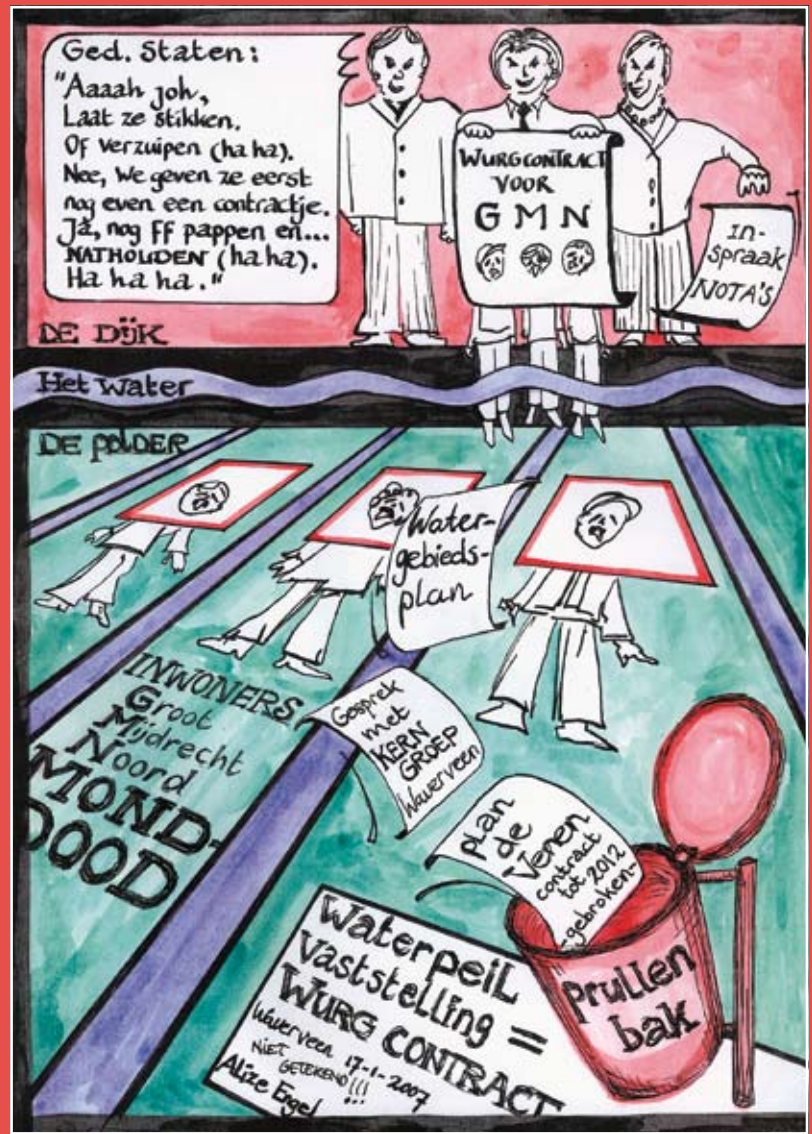 Ged. Staten:
"Aaaah joh,
Laat ze stikken.
Of verzuipen (ha ha).
Nee, we geven ze eerst
nog even een contractje.
Já, nog ff pappen en...
NATHOUDEN (ha ha).
Ha ha ha."
WURGCONTRACT
VOOR
GMN
IN-
spraak
NOTA'S
DE DIJK
Het Water
DE POLDER
Water-
gebieds-
plan
INWONERS
Groot
Mijdrecht
Noord
MOND-
DOOD
Gesprek
met
KERN
GROEP
Waverveen
plan
de
Venen
contract
tot 2012
-gebroken-
prullen
bak
Waterpeil
Vaststelling =
WURG CONTRACT
Waverveen 17-1-2007
NIET
GETEKEND!!!
Alize Engel